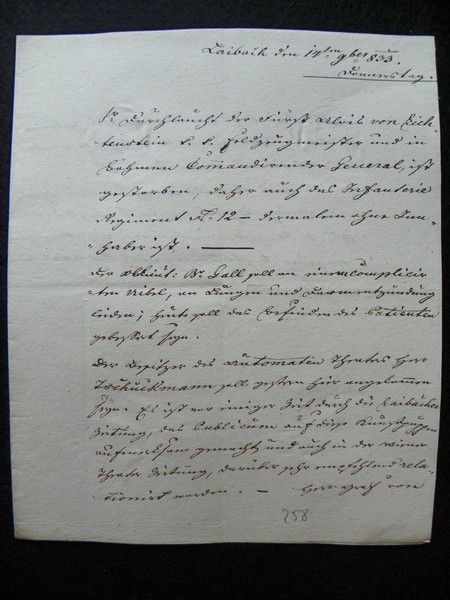 Laibach den 14ten 9ber 833.
Donnerstag.
Sr Durchlaucht der Fürst Alois von Lich-
tenstein k. k. Feldzeugmeister und in
Böhmen Commandirender General, ist
gestorben, daher auch das Infanterie
Regiment N. 12 – dermalen ohne Inn-
haber ist. —
Der Br Gall soll an einem complicir-
ten Uibel, an Lungen und Darmentzündung
leiden; heute soll das Befinden des Patienten
gebessert seyn.
Der Besitzer des Automaten Theaters Herr
Tschuckmann soll gestern hier angekommen
seyn. Es ist vor einiger Zeit durch die Laibacher
Zeitung, das Publicum auf diese
aufmerksam gemacht, und auch in der Wiener
Theater Zeitung, darüber sehr empfehlend rela-
tionirt worden. — Herr Graf von
258